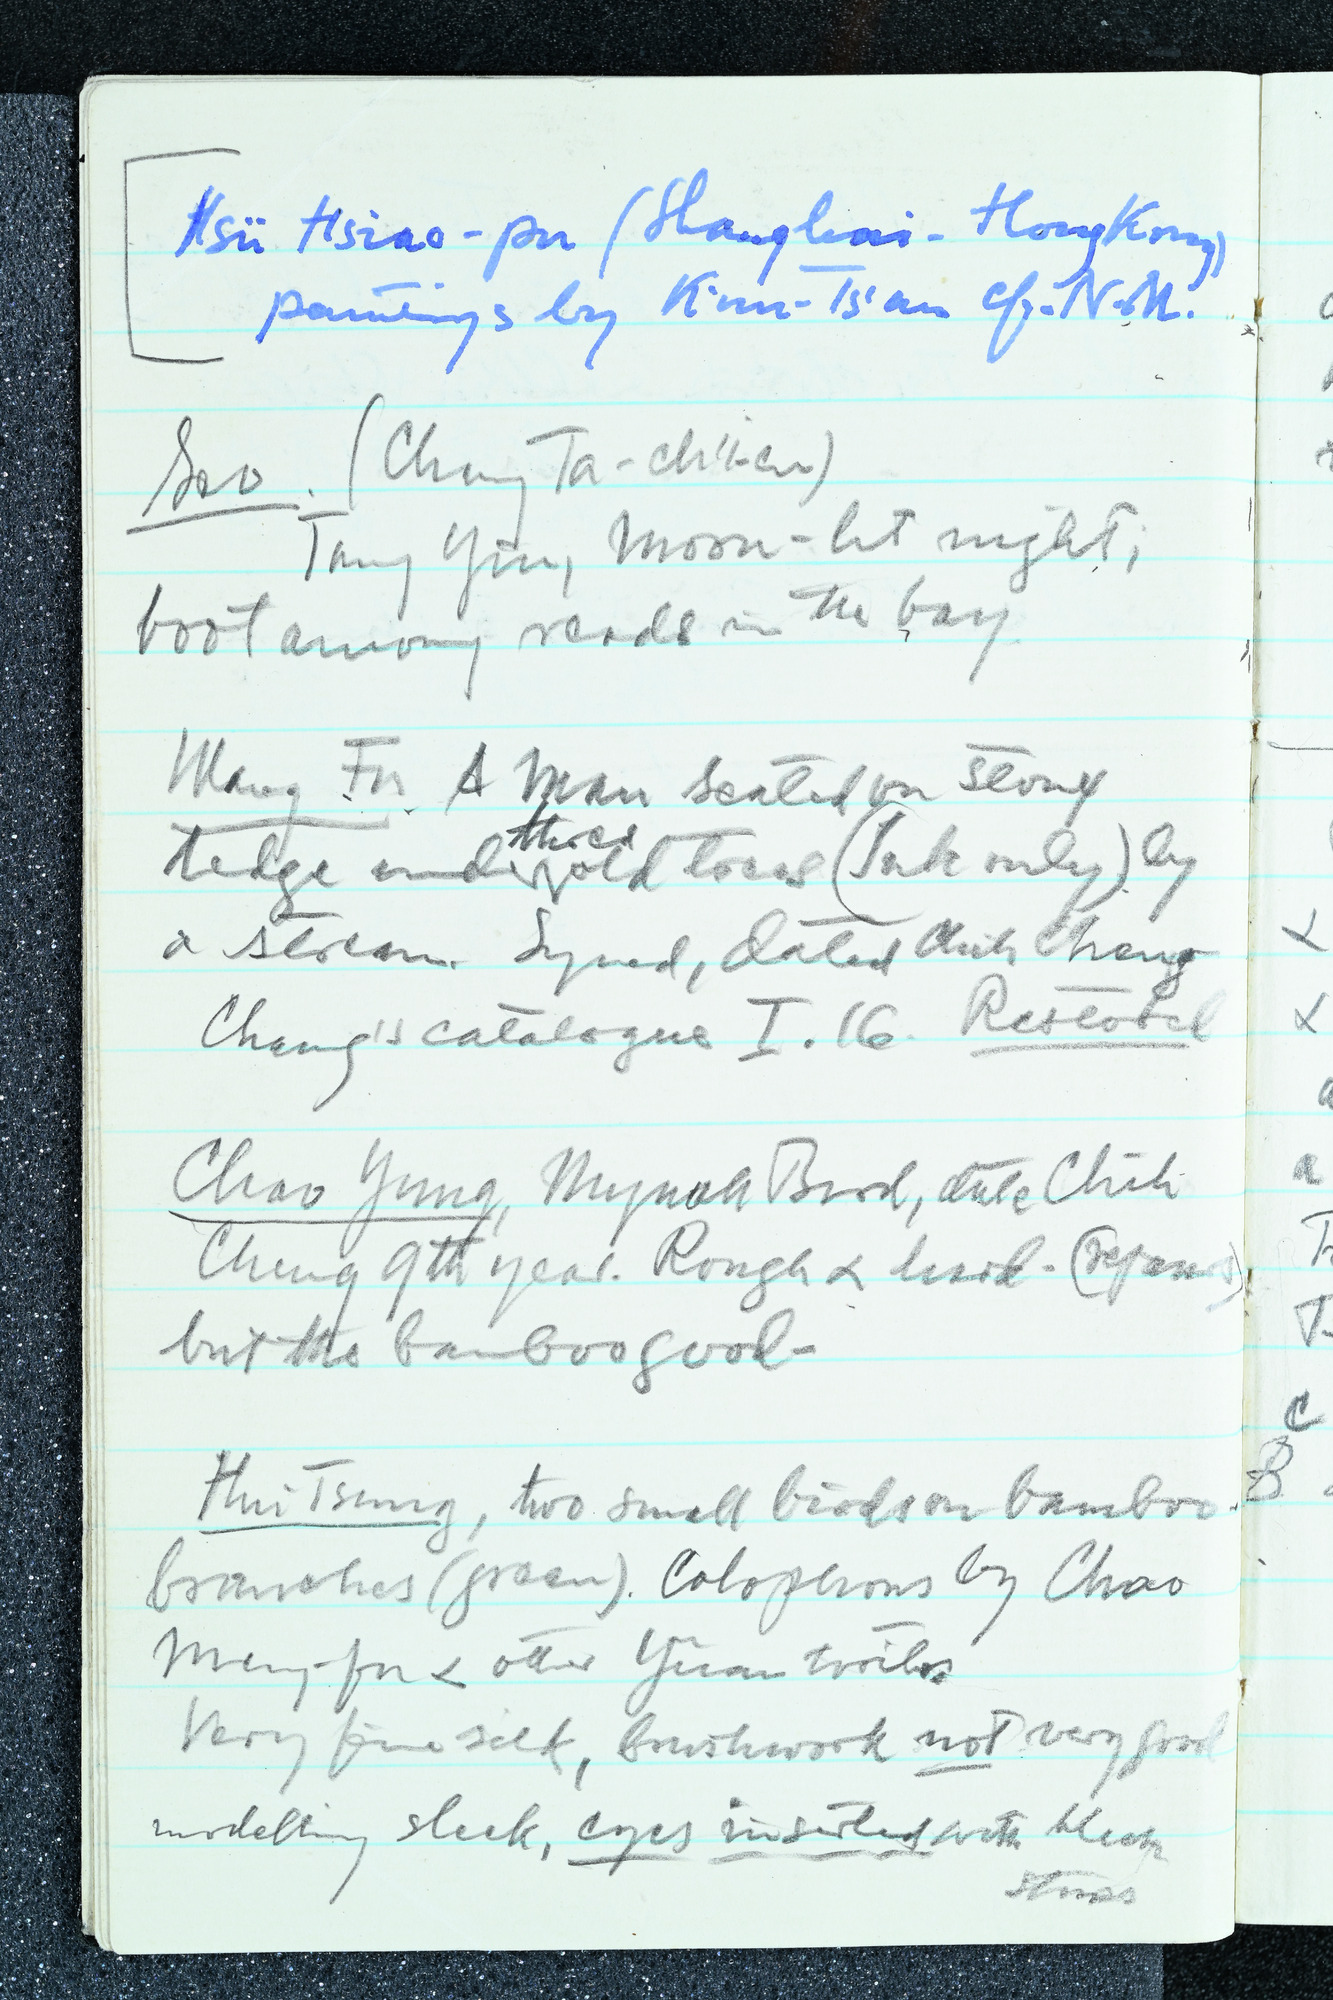 Hsü Hsiao-pu (Shanghai - HongKong)
paintings by K'un-Ts'an cf. N.M.
Sao. (Chang Ta-ch'ien)
Tang Yin, Moon-lit night;
boot among reads in the bay
Wang Fu. A Man seated on stony
ledge under three old trees (Ink only) by
a stream. Signed, dated Chih Cheng
Chang's catalogue I.16. Restored
Chao Yung, Mynah Bird, date Chih
Cheng 9th year. Rough & hard - (repairs)
but the bamboo good-
Hui Tsung, two small birds on bamboo
branches (green). Colophons by Chao
Meng-fu & other Yüan writers
Very fine silk, brushwork not very good
modelling sleek, eyes inserted with black